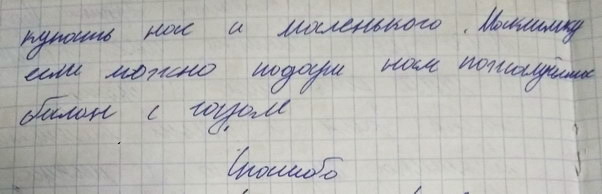 купать нас и маленького Максимку
если можно подари нам пожалуйста
балон с газом
Спасибо